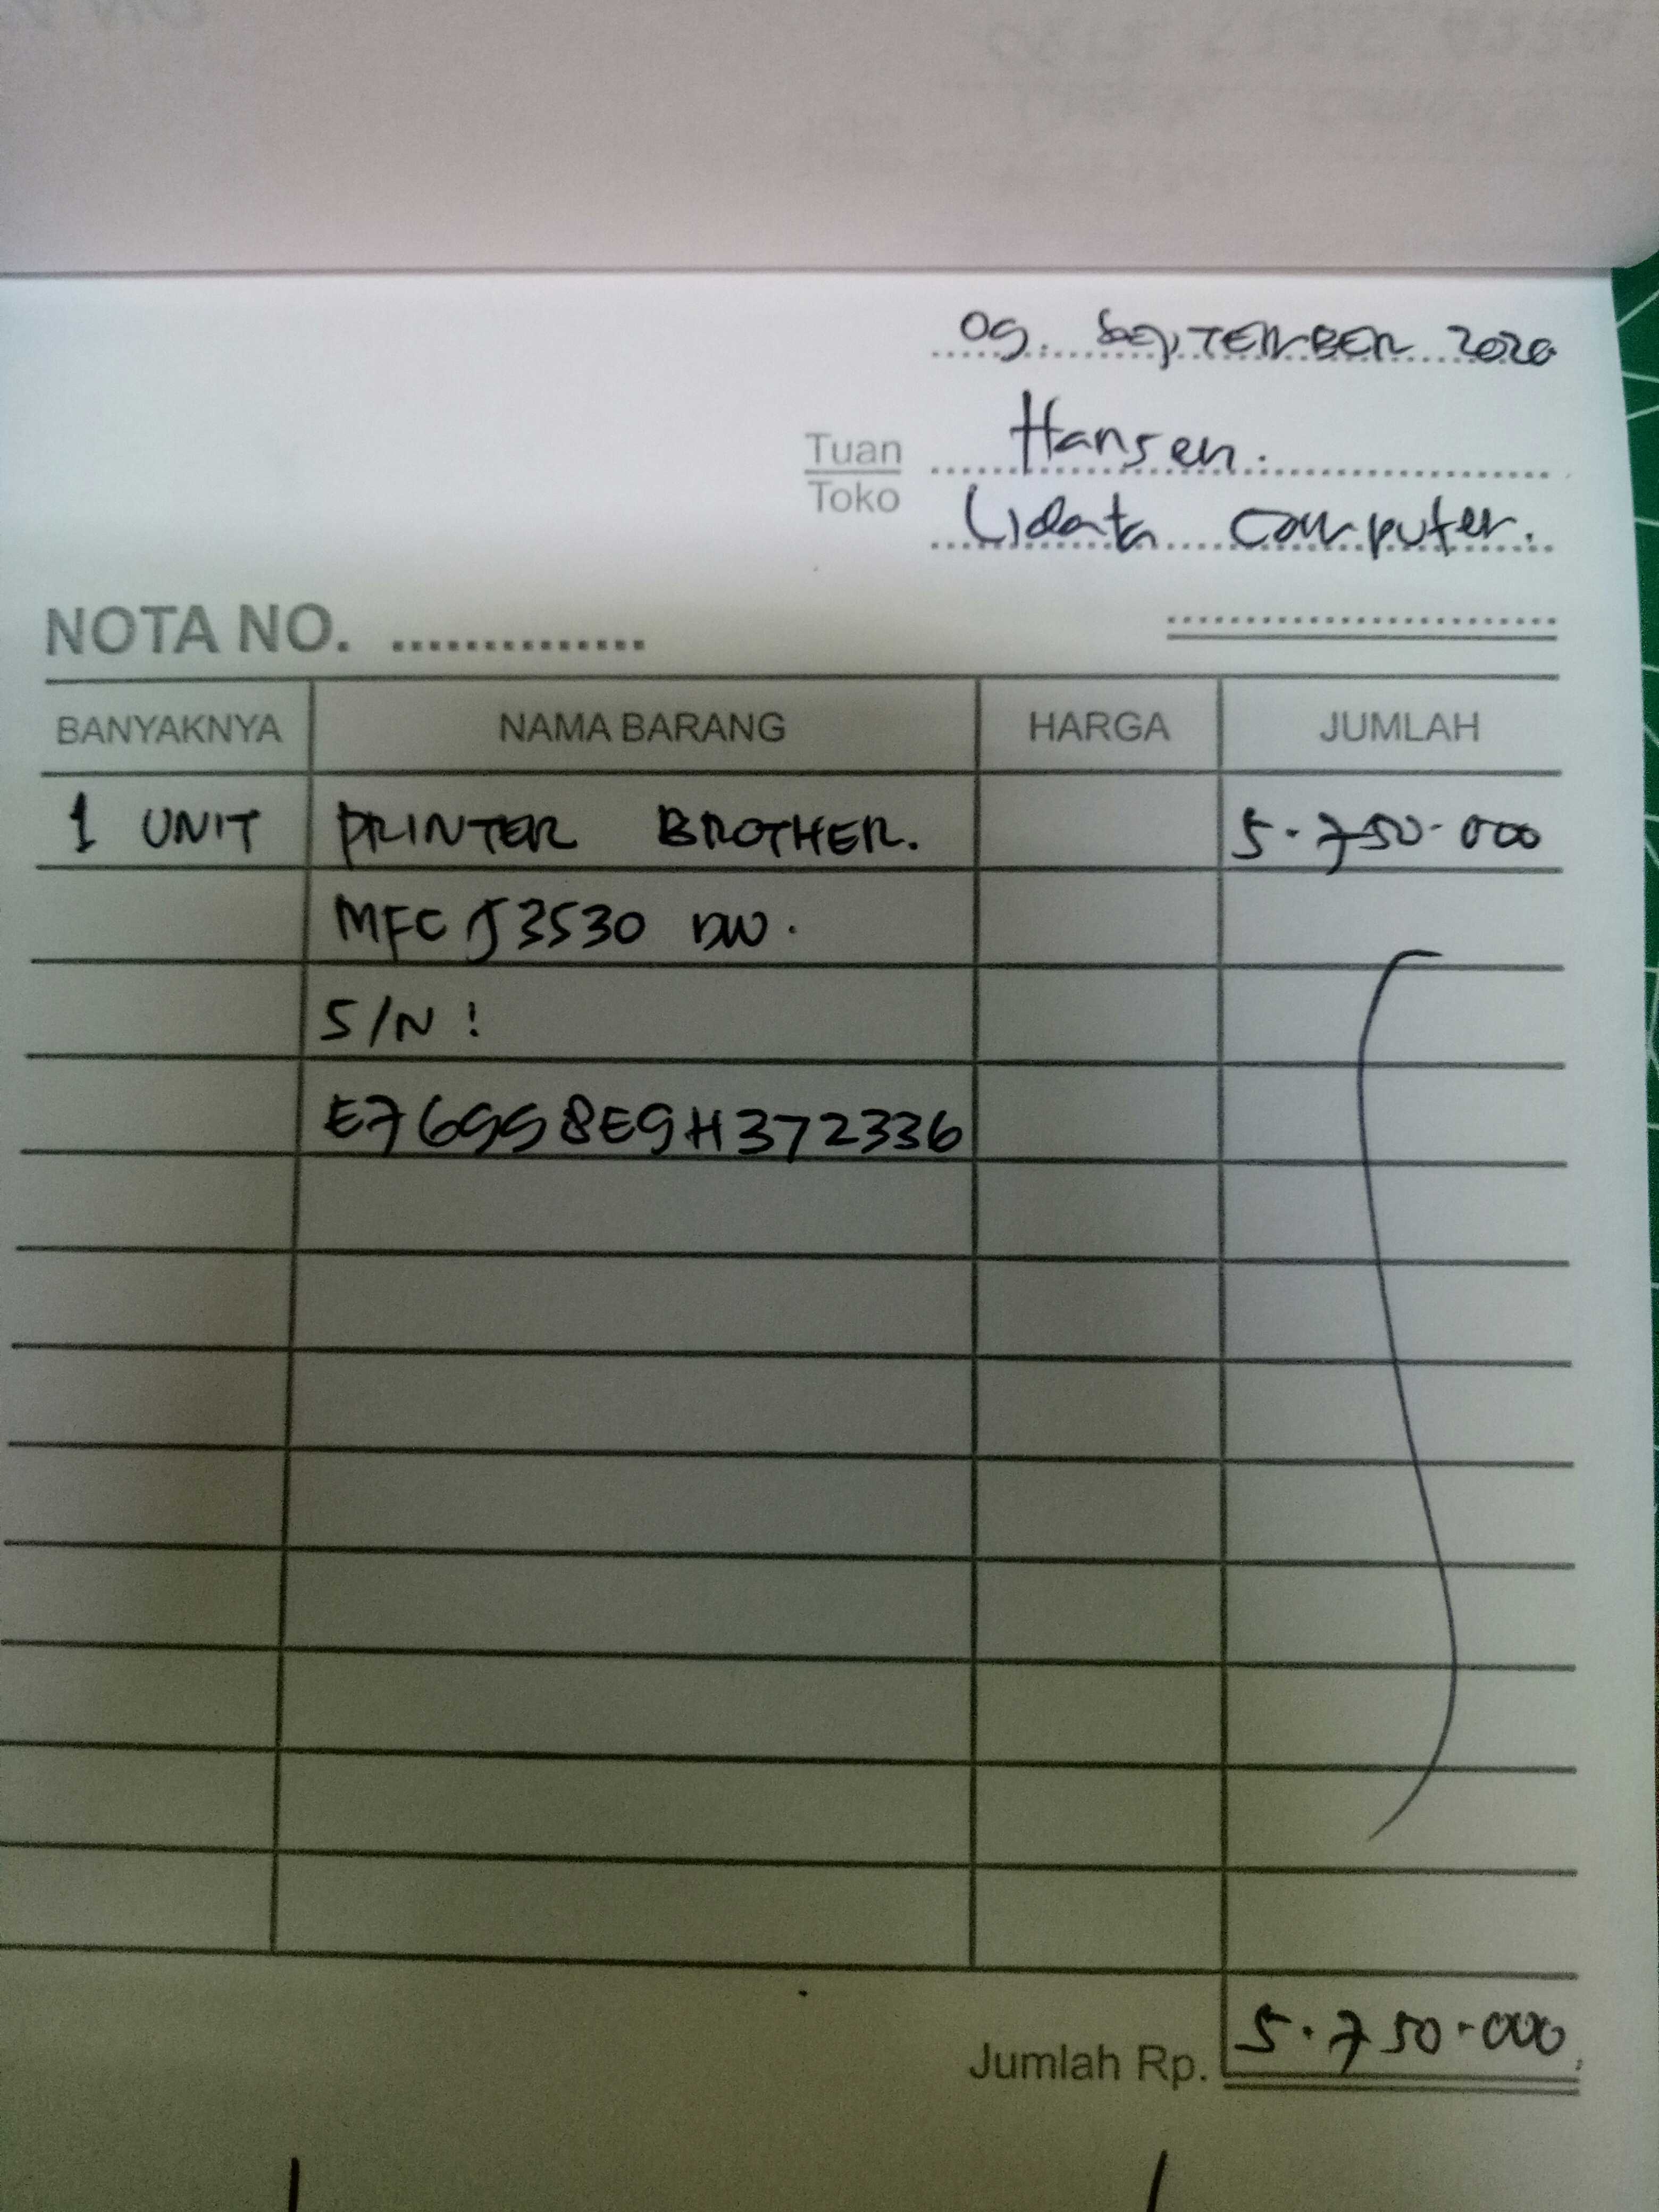 09. SEPTEMBER 2020
Tuan Hansen.
Toko Udata Computer.
NOTA NO. ..............
BANYAKNYA NAMA BARANG HARGA JUMLAH
1 UNIT PRINTER BROTHER. 5.750.000
MFC J3530 DW.
S/N :
E76998E9H372336
Jumlah Rp. 5.750.000